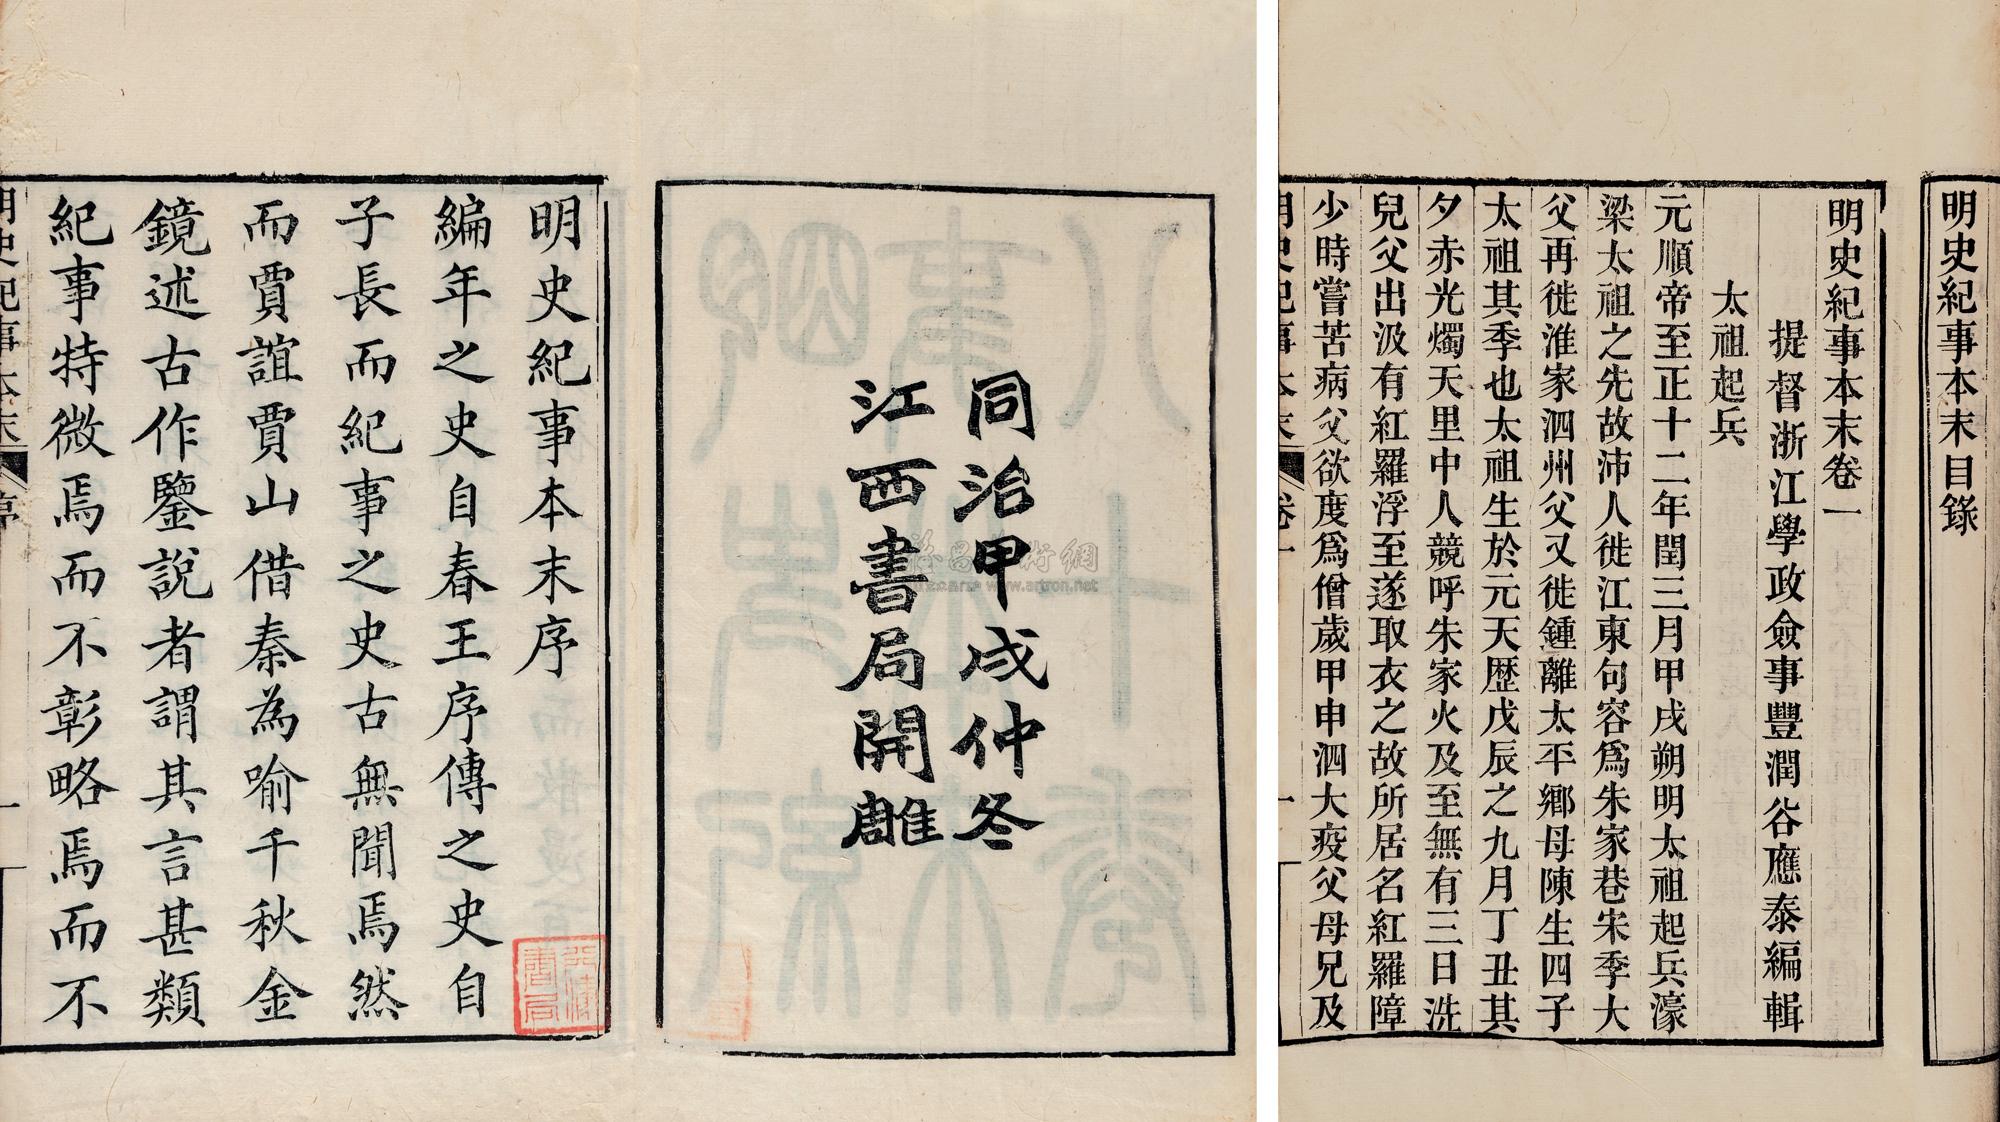 明史紀事本末目錄
明史紀事本末卷一
提督浙江學政僉事豐潤谷應泰編輯
太祖起兵
元順帝至正十二年閏三月甲戌朔明太祖起兵濠
梁太祖之先故沛人徙江東句容爲朱家巷宋季大
父再徙淮家泗州父又徙鍾離太平鄉母陳生四子
太祖其季也太祖生於元天歷戊辰之九月丁丑其
夕赤光燭天里中人競呼朱家火及至無有三日洗
兒父出汲有紅羅浮至遂取衣之故所居名紅羅障
少時嘗苦病父欲度爲僧歲甲申泗大疫父母兄及
明史紀事本末 卷一 一
同治甲戌仲冬
江西書局開雕
明史紀事本末序
編年之史自春王序傳之史自
子長而紀事之史古無聞焉然
而賈誼賈山借秦為喻千秋金
鏡述古作鑒說者謂其言甚類
紀事特微焉而不彰略焉而不
明史紀事本末 序 一